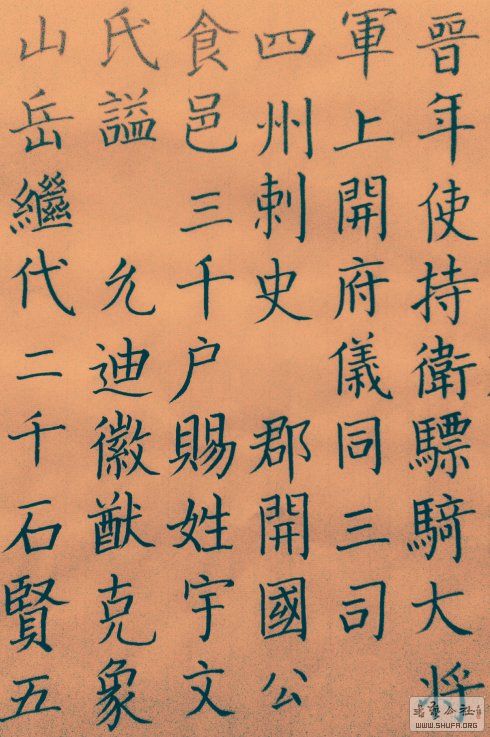 晉年使持衛驃騎大将
軍上開府儀同三司
四州刺史 郡開國公
食邑三千户賜姓宇文
氏謚 允迪徽猷克象
山岳繼代二千石賢五
公社
WWW.SHUFA.ORG